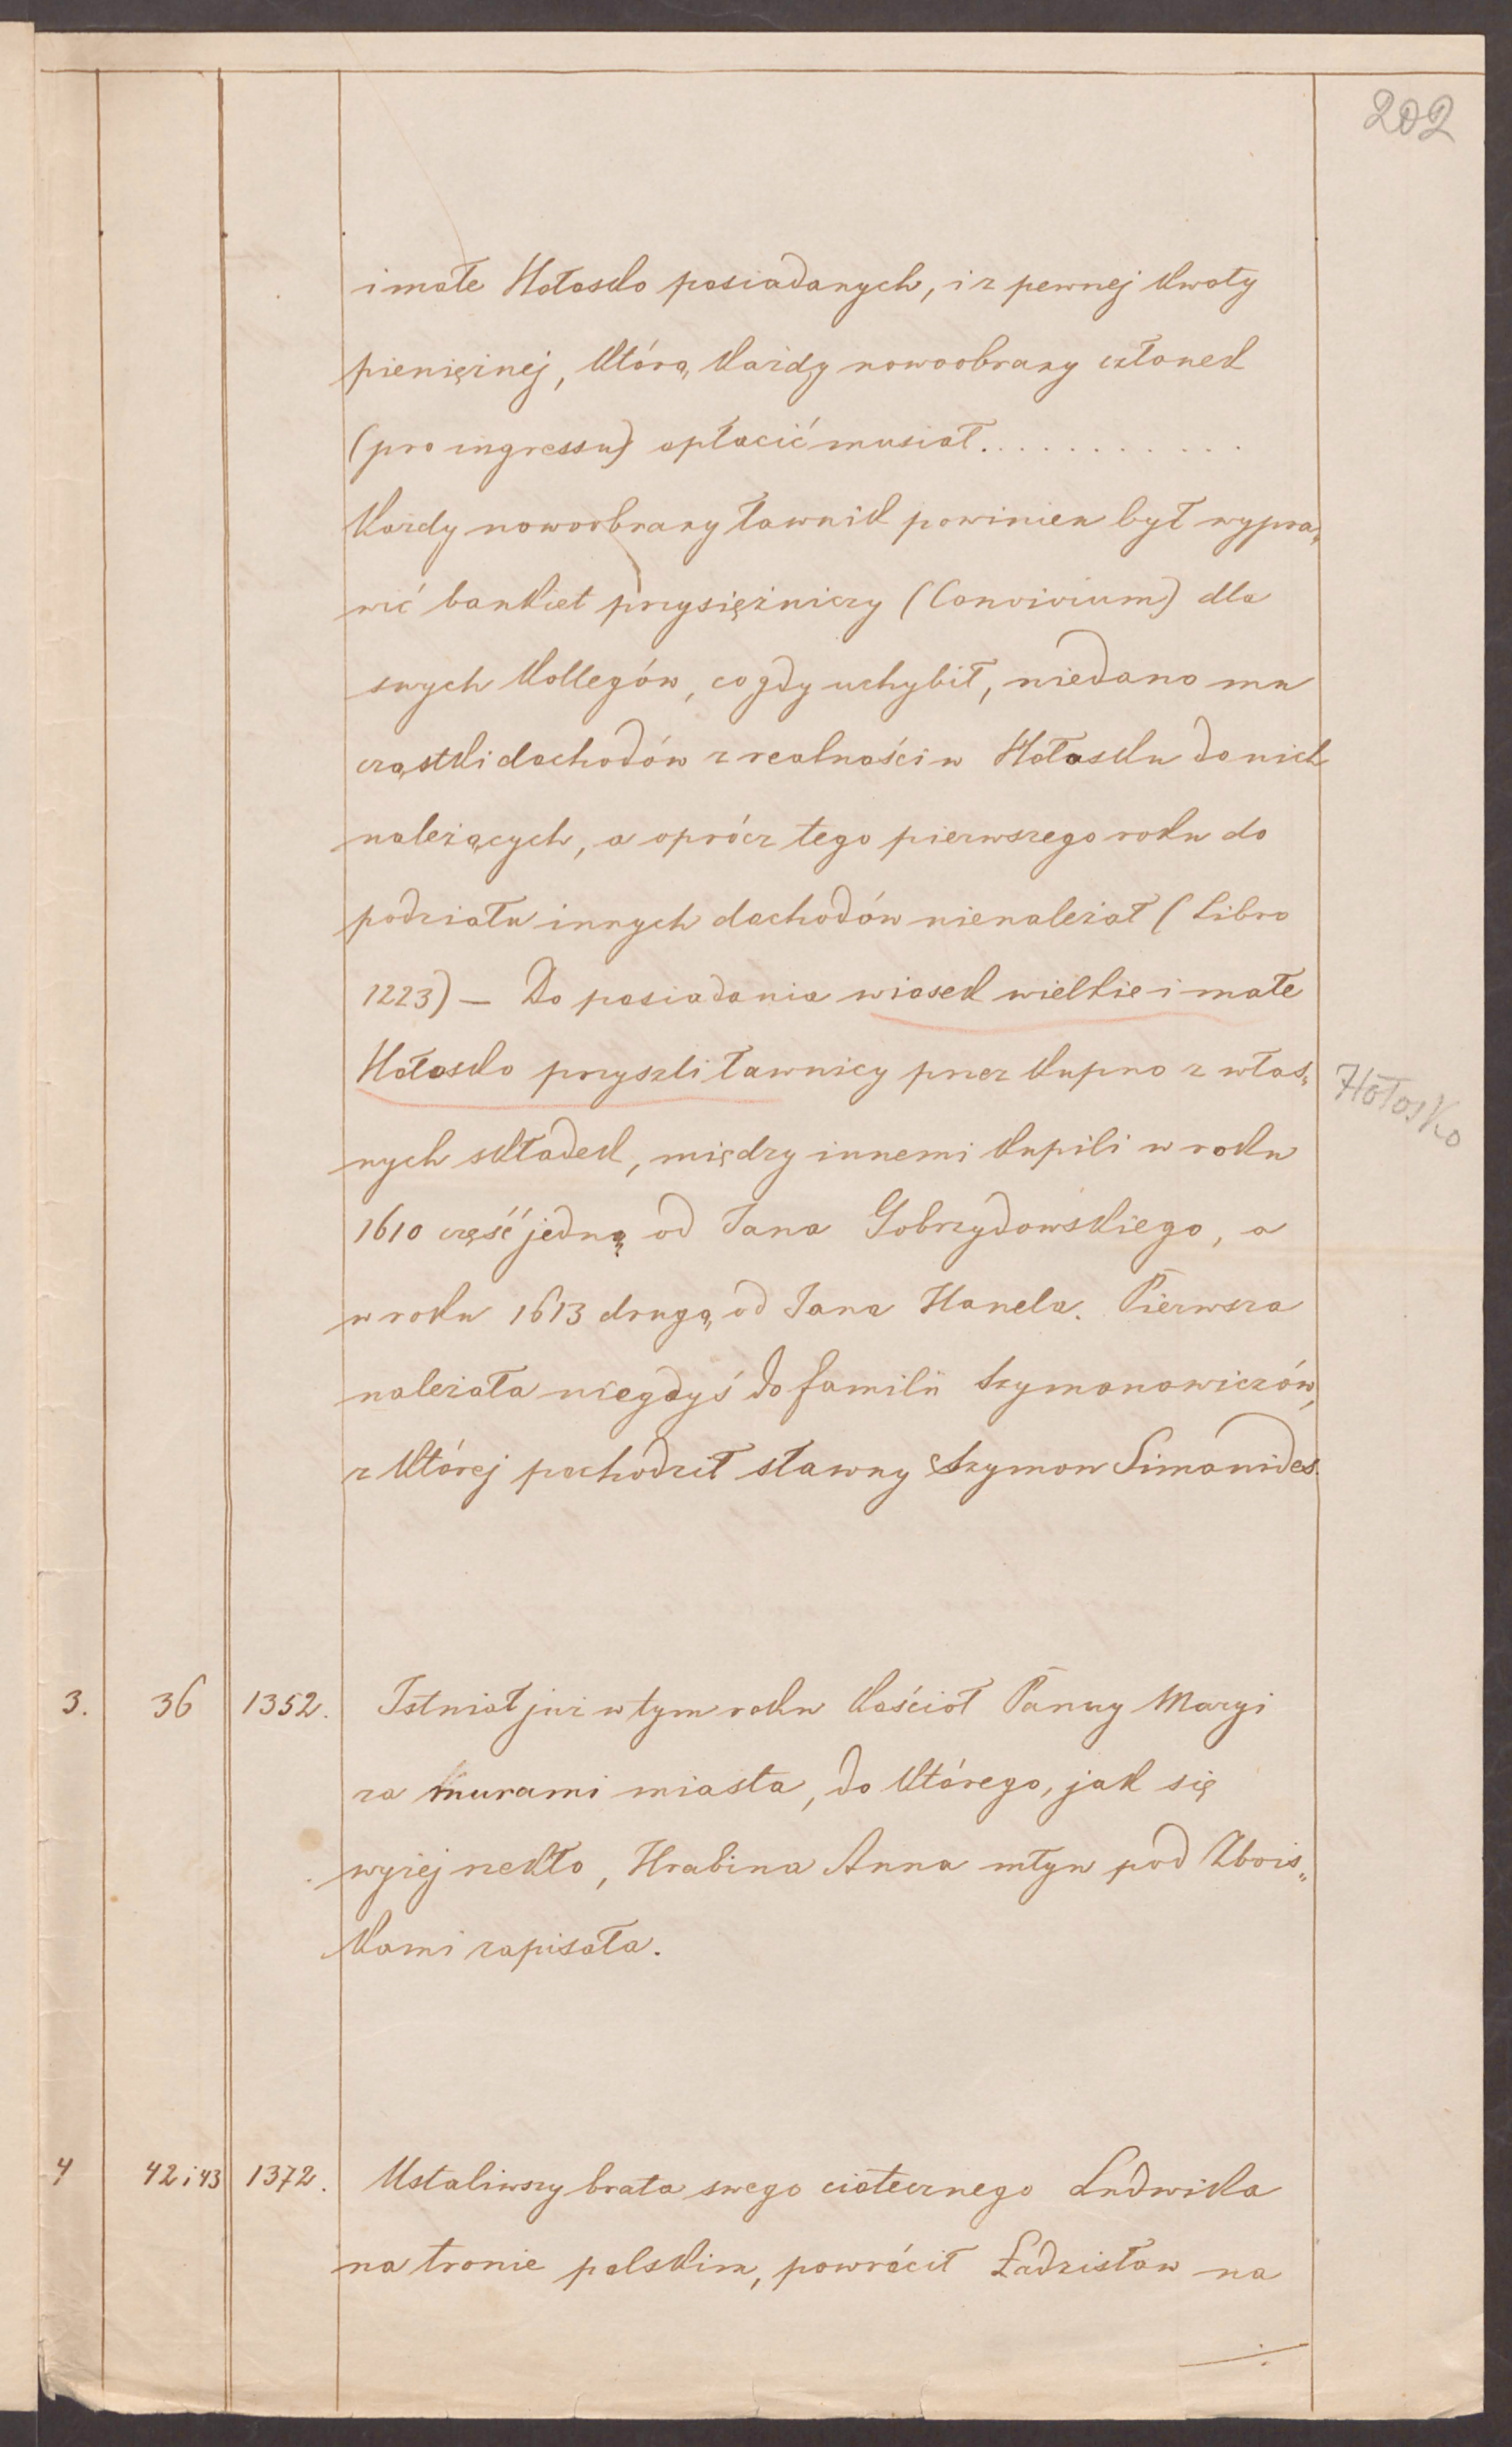 202
i małe Hołosko posiadanych, i z pewnej kwoty
pieniężnej, którą każdy nowoobrany członek
(pro ingressu) opłacić musiał............
Każdy nowoobrany ławnik powinien był wypra„
wić bankiet przysiężniczy (Convivium) dla
swych kollegów, co gdy uchybił, niedano mu
cząstki dochodów z realności w Hołosku do nich
należących, a oprócz tego pierwszego roku do
podziału innych dochodów nienależał (Libro
1223) — Do posiadania wiosek wielkie i małe
Hołosko przyszli ławnicy przez kupno z włas„
Hołosko
nych składek, między innemi kupili w roku
1610 część jedną od Jana Gobrzydowskiego, a
w roku 1613 drugą od Jana Hanela. Pierwsza
należała niegdyś do familii Szymonowiczów,
z której pochodził sławny Szymon Simonides.
3. 36 1352. Istniał już w tym roku kościół Panny Maryi
za murami miasta, do którego, jak się
wyżej rzekło, Hrabina Anna młyn pod Zbois„
kami zapisała.
4 42 i 43 1372. Ustaliwszy brata swego ciotecznego Ludwika
na tronie polskim, powrócił Ładzisław na
./.